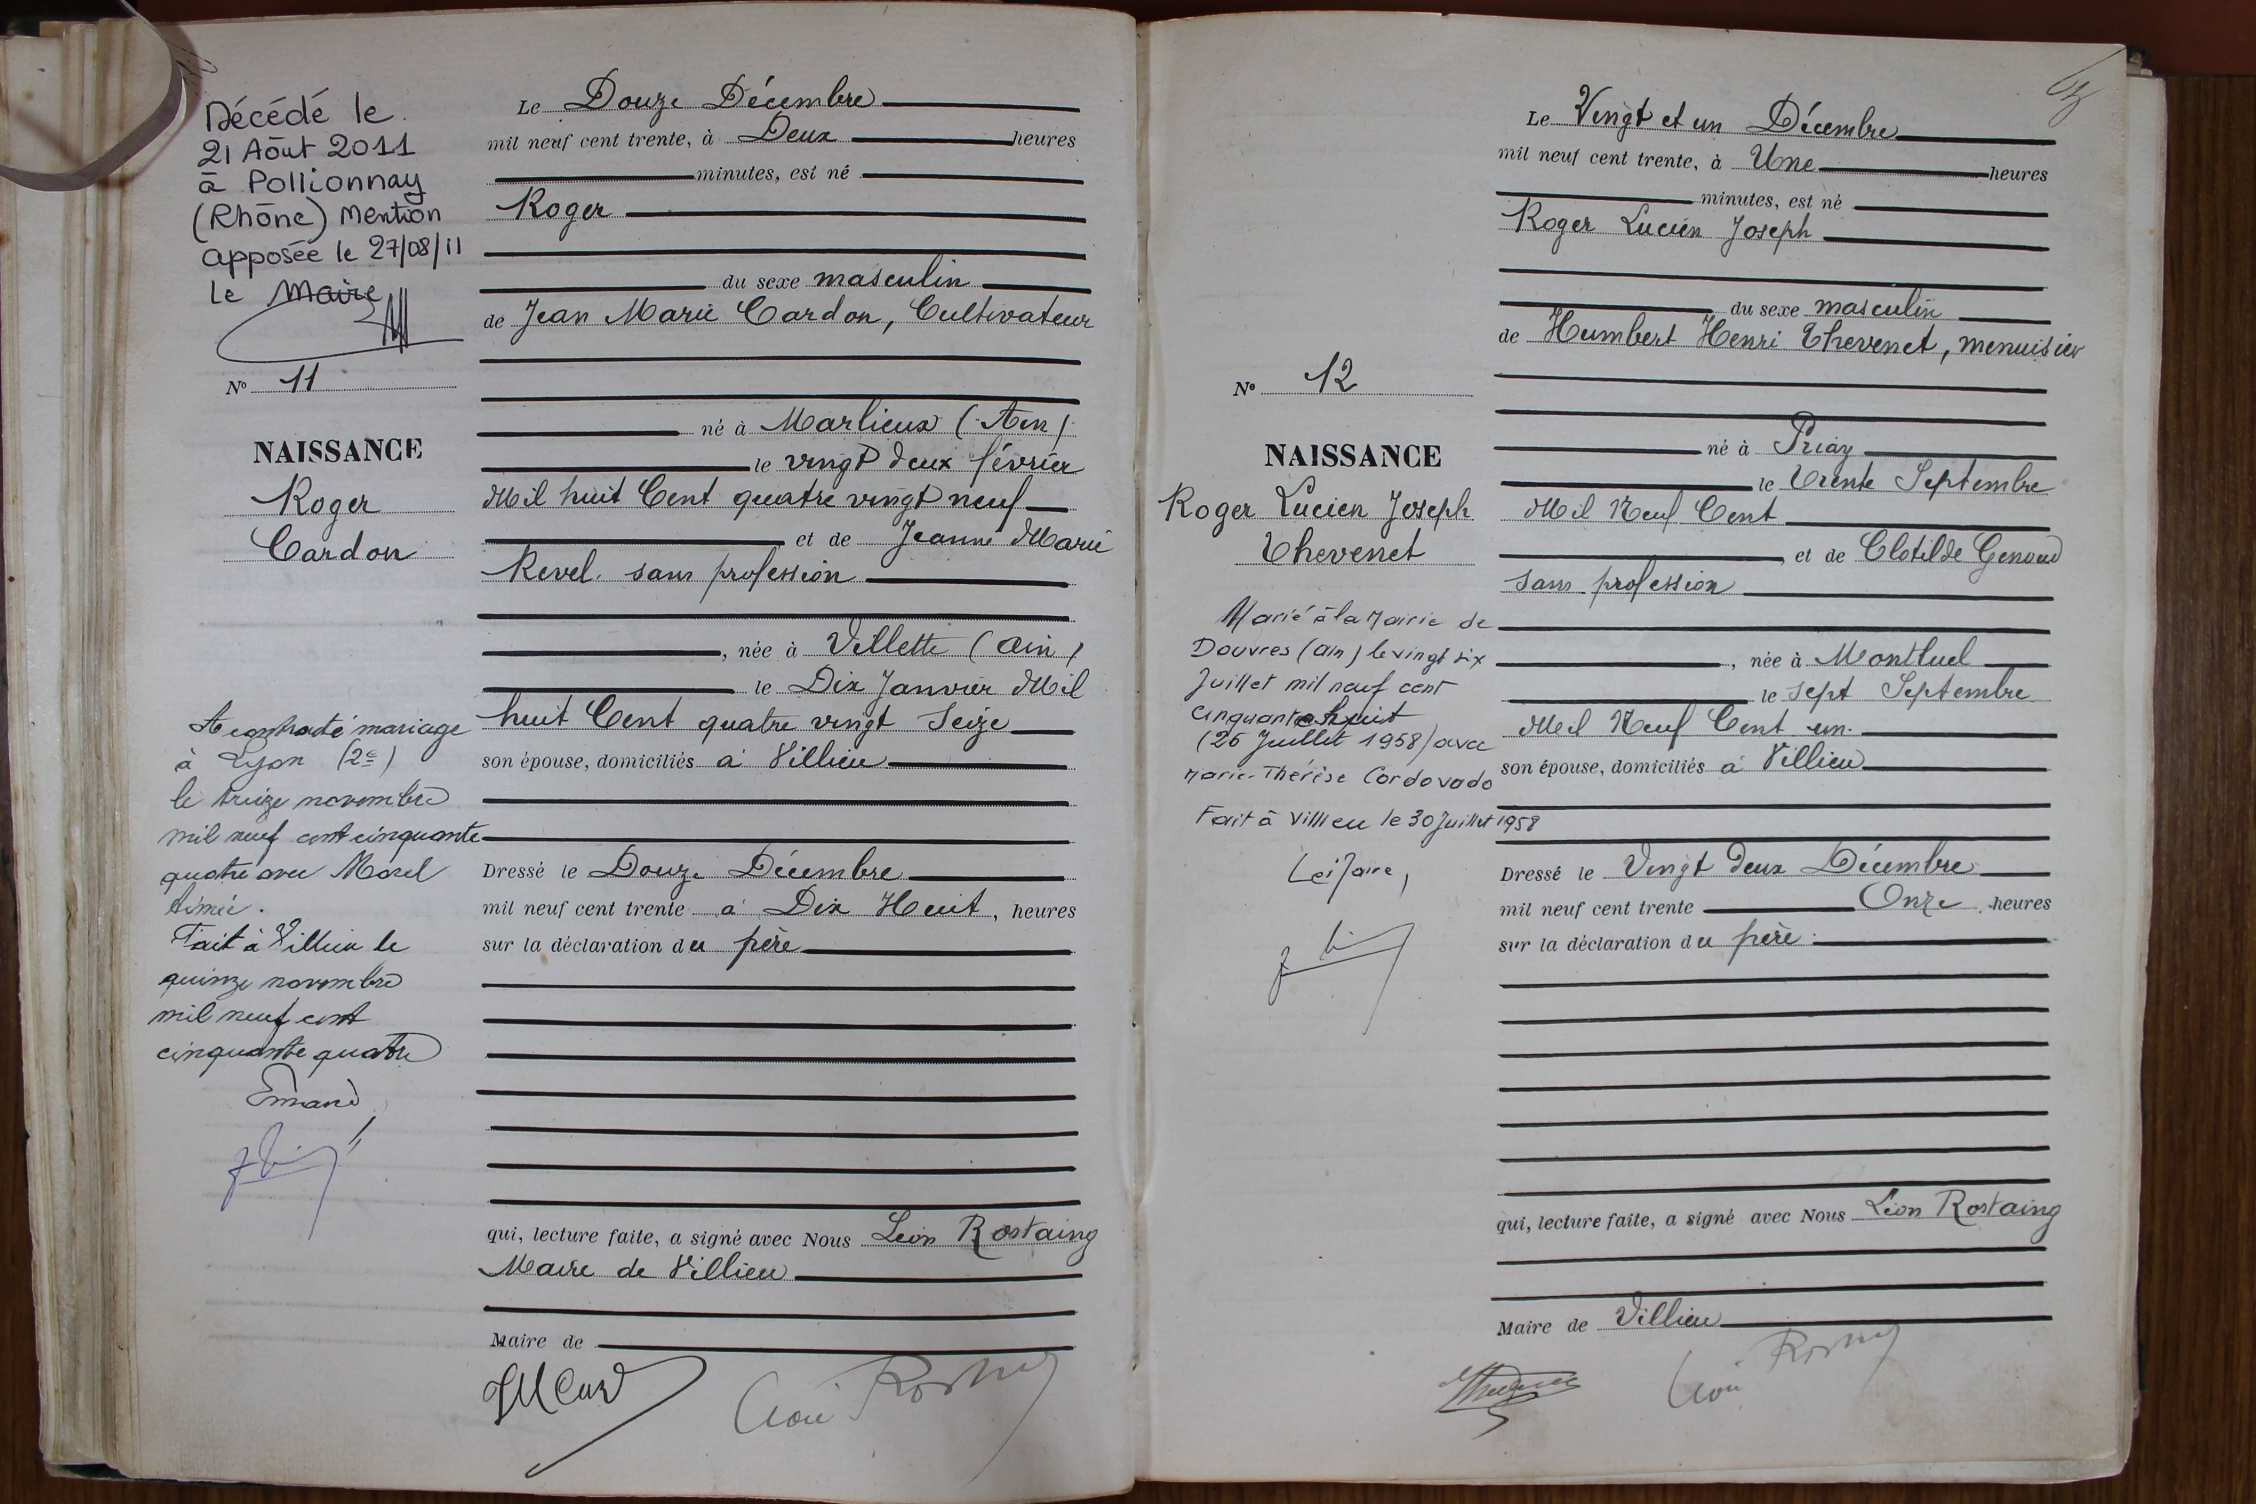 Décédé le
21 Aôut 2011
à Pollionnay
(Rhône) Mention
apposée le 27/08/11
Le Maire
N° 11
NAISSANCE
Roger
Cardon
A contracté mariage
à Lyon (2e)
le treize novembre
mil neuf cent cinquante
quatre avec Morel
Aimée.
Fait à Villieu le
quinze novembre
mil neuf cent
cinquante quatre
Le Douze Décembre
mil neuf cent trente, à Deux heures
minutes, est né
Roger
du sexe masculin
de Jean Marie Cardon, Cultivateur
né à Marlieux (Ain)
le vingt deux février
Mil huit Cent quatre vingt neuf
et de Jeanne Marie
Revel. sans profession
, née à Villette (Ain)
le Dix Janvier Mil
huit Cent quatre vingt Seize
son épouse, domiciliés à Villieu
Dressé le Douze Décembre
mil neuf cent trente à Dix Huit, heures
sur la déclaration du père
qui, lecture faite, a signé avec Nous Léon Rostaing
Maire de Villieu
Maire de
N° 12
NAISSANCE
Roger Lucien Joseph
Thevenet
Marié à la Mairie de
Douvres (Ain) le vingt six
Juillet mil neuf cent
cinquante huit
(26 Juillet 1958) avec
Marie-Thérèse Cordovado
Fait à Villieu le 30 Juillet 1958
Le Maire,
Le Vingt et un Décembre
mil neuf cent trente, à Une heures
minutes, est né
Roger Lucien Joseph
du sexe masculin
de Humbert Henri Thevenet, menuisier
né à Priay
le Trente Septembre
Mil Neuf Cent
et de Clotilde Genoud
sans profession
, née à Montluel
le sept Septembre
Mil Neuf Cent un.
son épouse, domiciliés à Villieu
Dressé le Vingt deux Décembre
mil neuf cent trente Onze heures
sur la déclaration du père.
qui, lecture faite, a signé avec Nous Léon Rostaing
Maire de Villieu